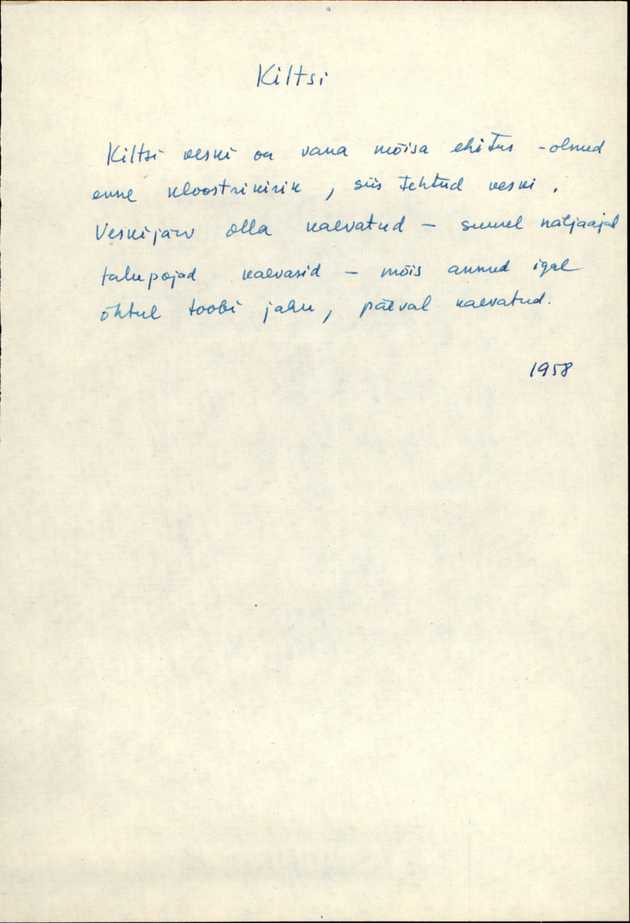 Kiltsi
Kiltsi veski on vana mõisa ehitus - olnud
enne kloostrikirik, siis tehtud veski.
Veskijärv olla kaevatud - suurel näljaajal
talupojad kaevasid - mõis annud igal
õhtul toobi jahu, päeval kaevatud.
1958